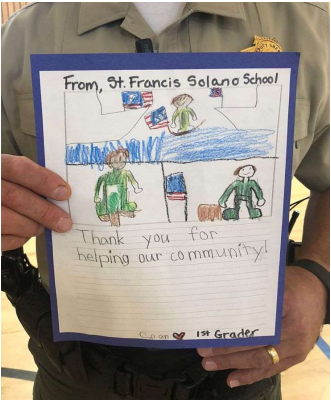 From, St. Francis Solano School
Thank you for
helping our community!
1st Grader